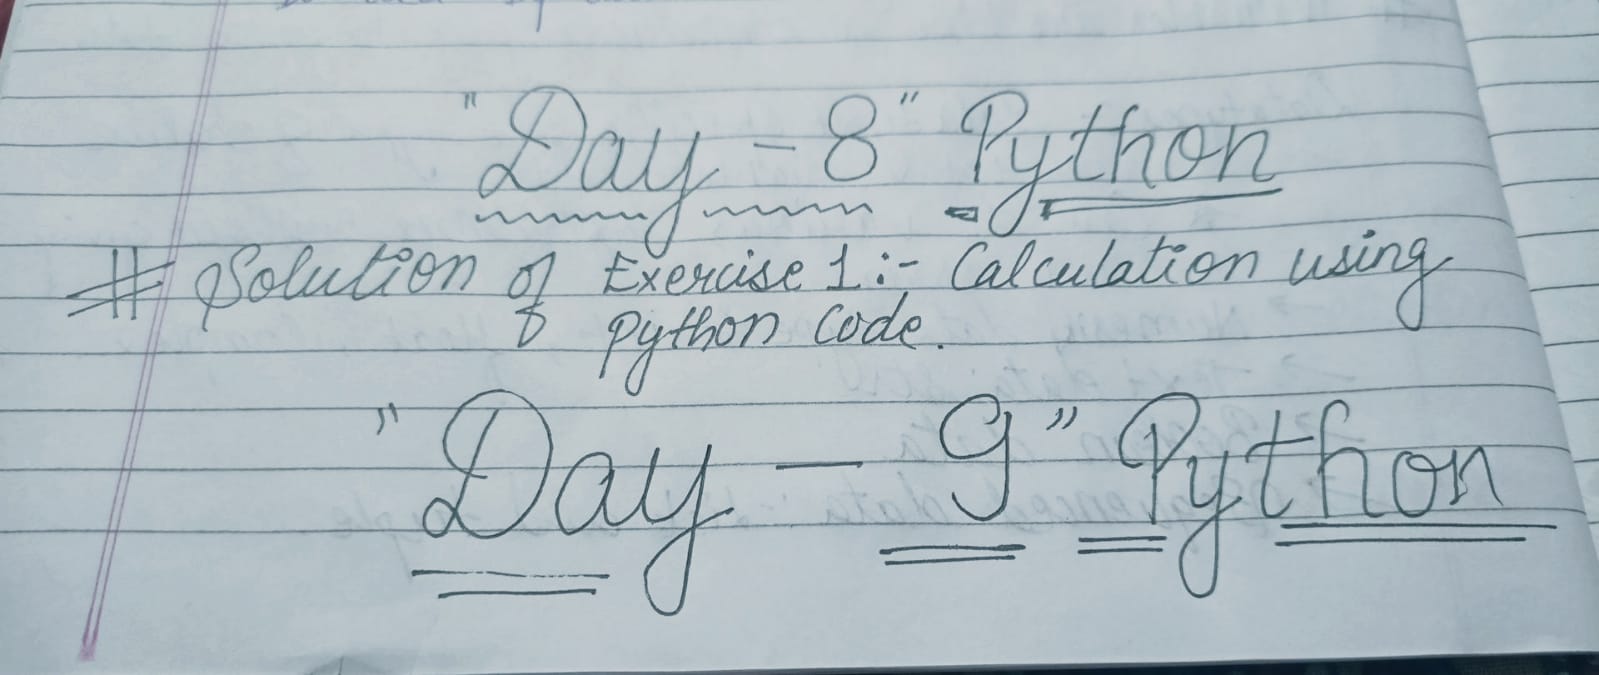 "Day - 8" Python
# Solution of Exercise 1 :- Calculation using
Python Code.
"Day - 9" Python